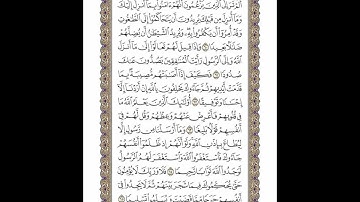 أَلَمْ تَرَ إِلَى ٱلَّذِينَ يَزْعُمُونَ أَنَّهُمْ ءَامَنُوا۟ بِمَآ أُنزِلَ إِلَيْكَ
وَمَآ أُنزِلَ مِن قَبْلِكَ يُرِيدُونَ أَن يَتَحَاكَمُوٓا۟ إِلَى ٱلطَّٰغُوتِ
وَقَدْ أُمِرُوٓا۟ أَن يَكْفُرُوا۟ بِهِۦ وَيُرِيدُ ٱلشَّيْطَٰنُ أَن يُضِلَّهُمْ
ضَلَٰلًۢا بَعِيدًا ٦٠ وَإِذَا قِيلَ لَهُمْ تَعَالَوْا۟ إِلَىٰ مَآ أَنزَلَ
ٱللَّهُ وَإِلَى ٱلرَّسُولِ رَأَيْتَ ٱلْمُنَٰفِقِينَ يَصُدُّونَ عَنكَ
صُدُودًا ٦١ فَكَيْفَ إِذَآ أَصَٰبَتْهُم مُّصِيبَةٌۢ بِمَا
قَدَّمَتْ أَيْدِيهِمْ ثُمَّ جَآءُوكَ يَحْلِفُونَ بِٱللَّهِ إِنْ أَرَدْنَآ إِلَّآ
إِحْسَٰنًا وَتَوْفِيقًا ٦٢ أُو۟لَٰٓئِكَ ٱلَّذِينَ يَعْلَمُ ٱللَّهُ مَا
فِى قُلُوبِهِمْ فَأَعْرِضْ عَنْهُمْ وَعِظْهُمْ وَقُل لَّهُمْ فِىٓ
أَنفُسِهِمْ قَوْلًۢا بَلِيغًا ٦٣ وَمَآ أَرْسَلْنَا مِن رَّسُولٍ إِلَّا
لِيُطَاعَ بِإِذْنِ ٱللَّهِ وَلَوْ أَنَّهُمْ إِذ ظَّلَمُوٓا۟ أَنفُسَهُمْ
جَآءُوكَ فَٱسْتَغْفَرُوا۟ ٱللَّهَ وَٱسْتَغْفَرَ لَهُمُ ٱلرَّسُولُ
لَوَجَدُوا۟ ٱللَّهَ تَوَّابًا رَّحِيمًا ٦٤ فَلَا وَرَبِّكَ لَا يُؤْمِنُونَ
حَتَّىٰ يُحَكِّمُوكَ فِيمَا شَجَرَ بَيْنَهُمْ ثُمَّ لَا يَجِدُوا۟ فِىٓ
أَنفُسِهِمْ حَرَجًا مِّمَّا قَضَيْتَ وَيُسَلِّمُوا۟ تَسْلِيمًا ٦٥